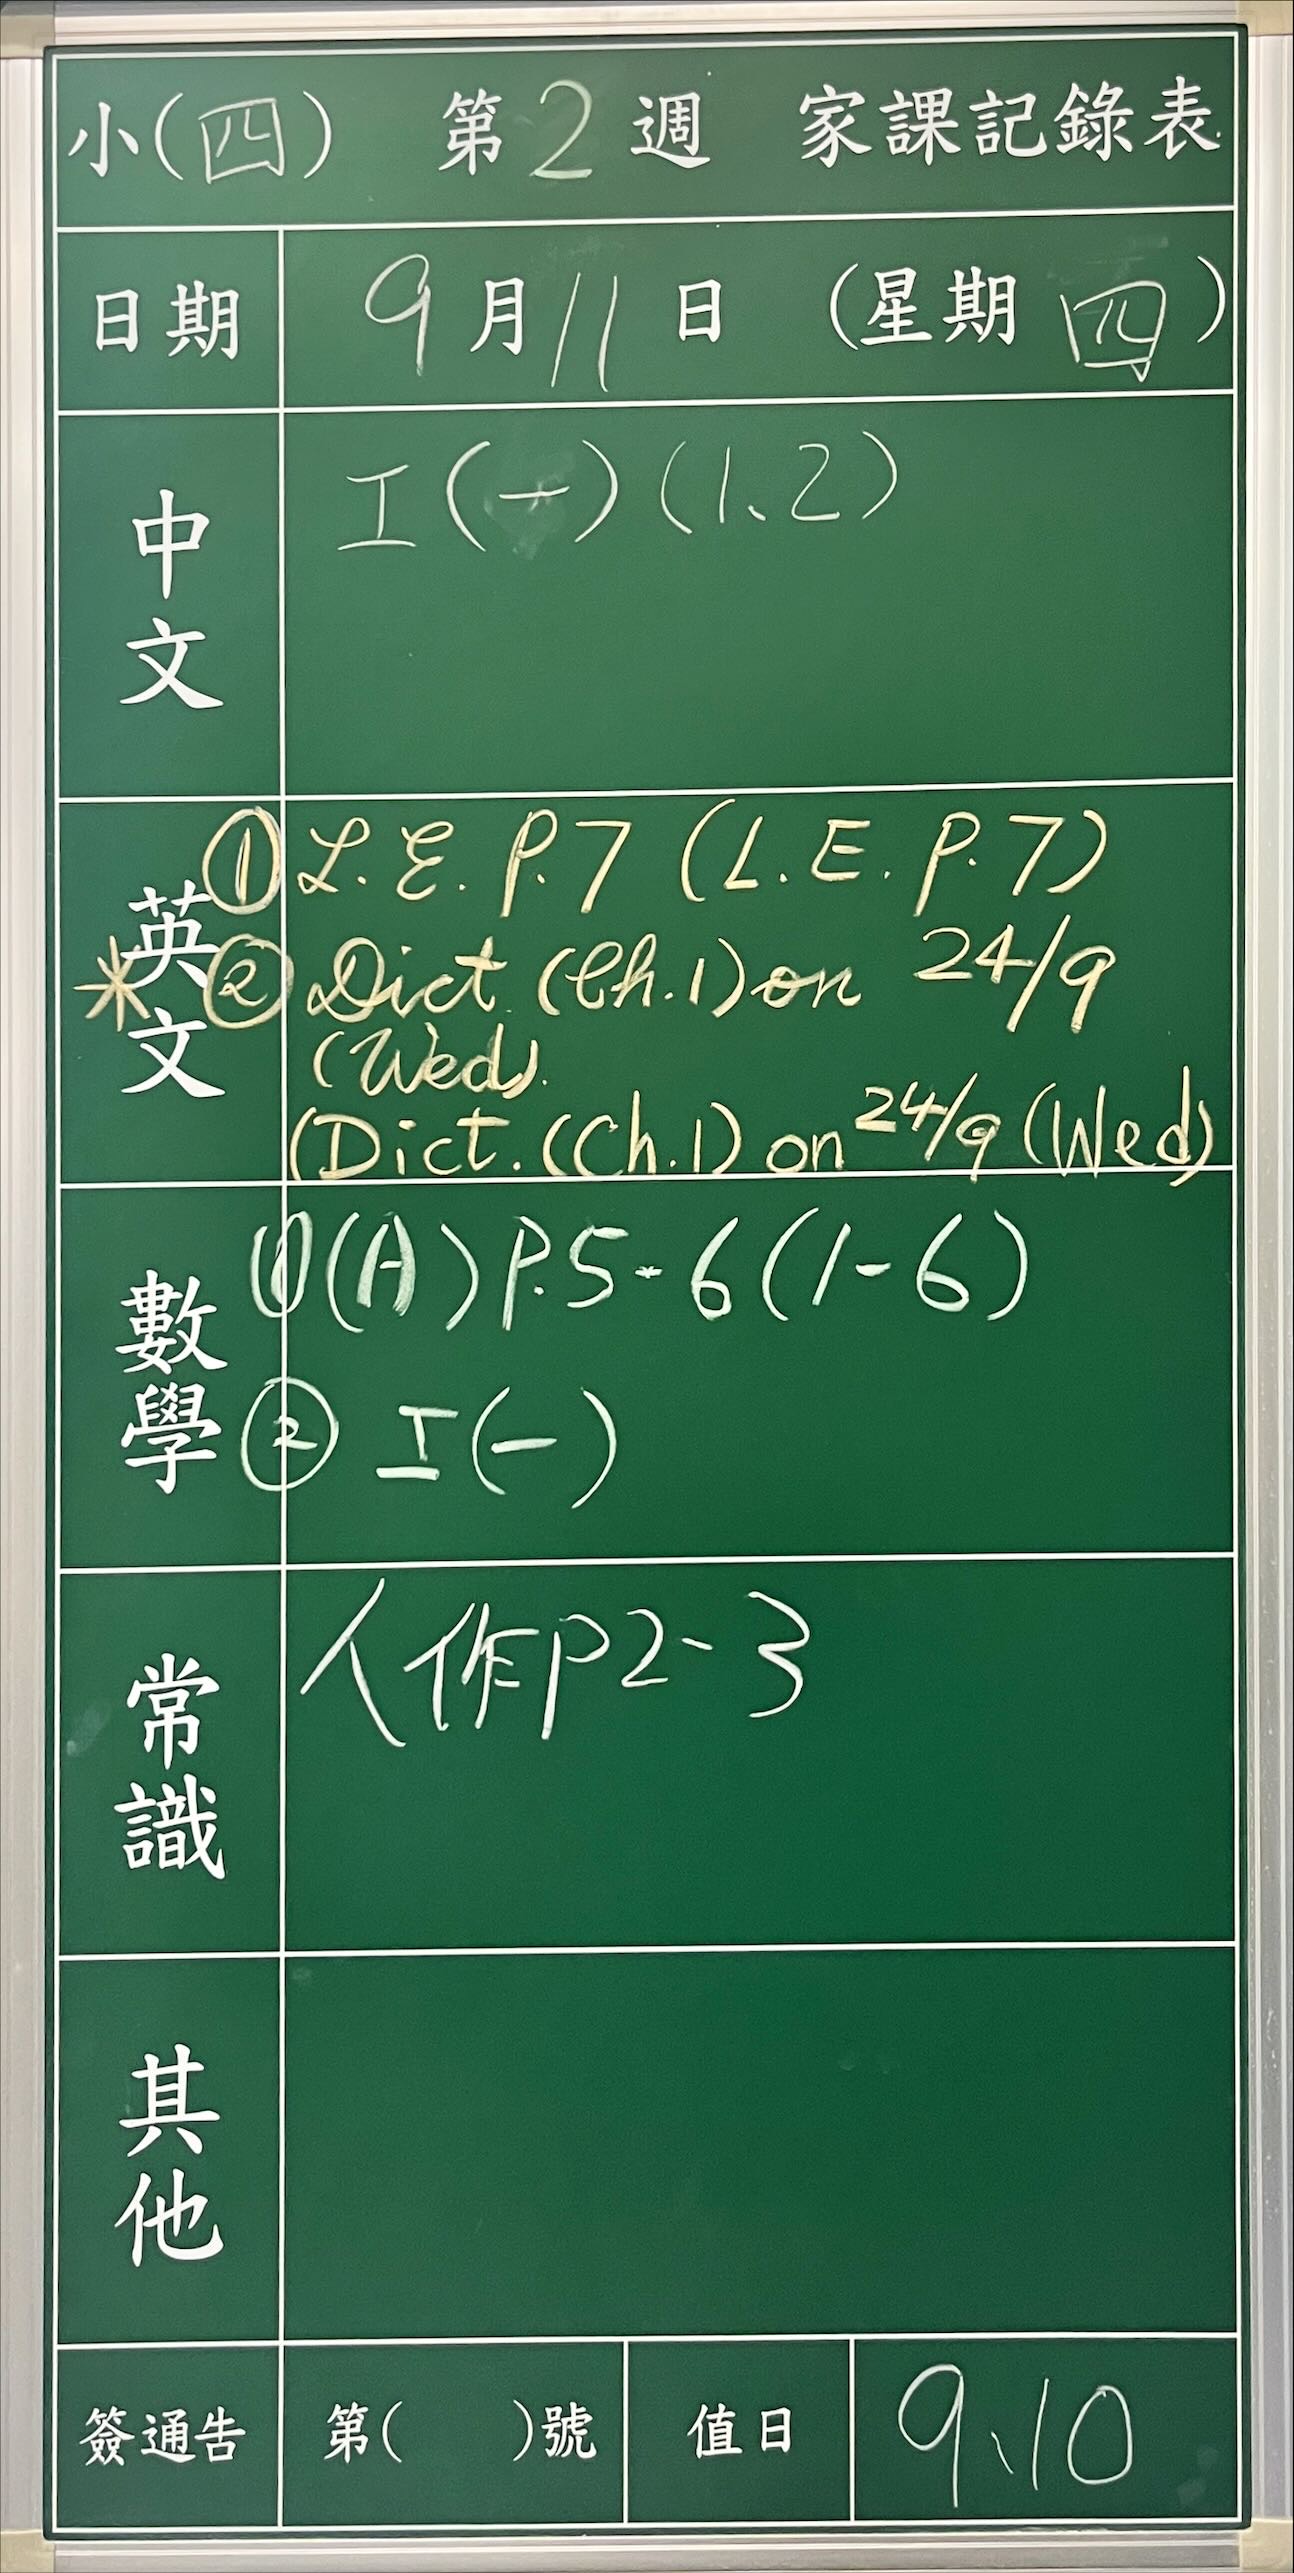 小(四) 第2週 家課記錄表
日期 9月11日 (星期四)
中文
工(一)(1、2)
英文
① L.E. P.7 (L.E. P.7)
* ② Dict. (Ch.1) on 24/9
(Wed).
(Dict. (Ch.1) on 24/9 (Wed)
數學
① (A) P.5-6 (1-6)
② 工(一)
常識
人作P2-3
其他
簽通告 第( )號 值日 9、10